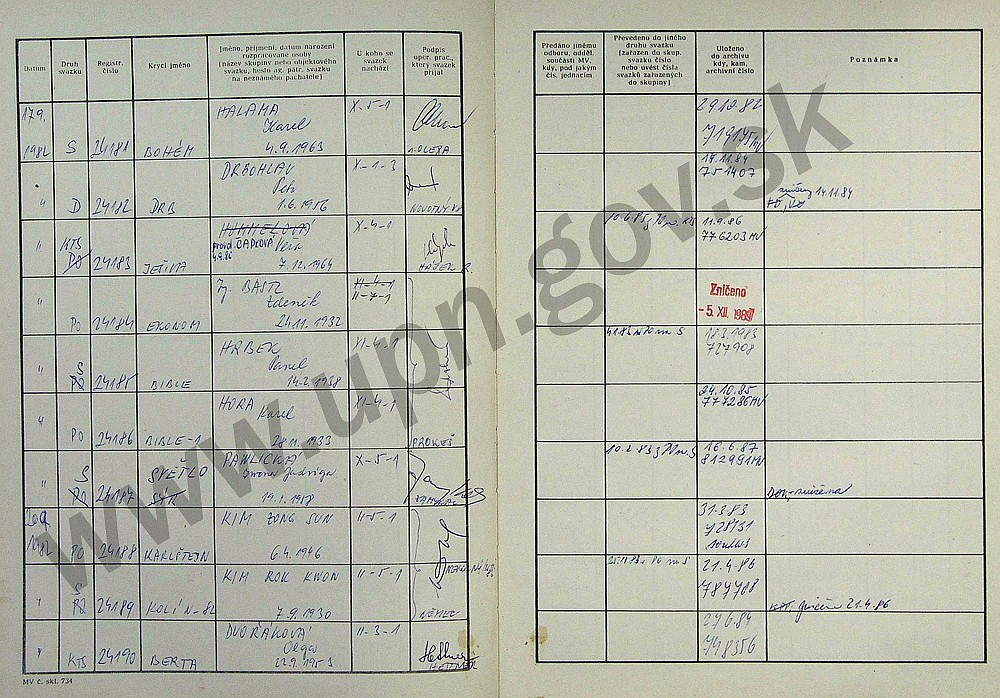 www.upn.gov.sk
Datum
Druh
svazku
Registr.
číslo
Krycí jméno
Jméno, příjmení, datum narození
rozpracované osoby
(název skupiny nebo objektového
svazku, heslo ag. pátr. svazku
na neznámého pachatele)
U koho se
svazek
nachází
Podpis
oper. prac.,
který svazek
přijal
17.9.
1982 S 24181 BOHÉM
HALAMA
Karel
4.9.1963
X-5-1
" D 24182 DRB
DRBOHLAV
Petr
1.6.1956
X-1-3
NOVOTNÝ
" KTS
24183 JEŘINA
provd. ČAPKOVÁ Věra
4.9.86
7.12.1964
X-4-1
HÁJEK R.
" PO 24184 EKONOM
Ing. BASTL
Zdeněk
24.11.1932
XI-4-1
II-7-1
" S
PO 24185 BIBLE
HRBEK
Pavel
14.2.1938
XI-4-1
" PO 24186 BIBLE-1
HORA
Karel
28.11.1933
XI-4-1
PROKEŠ
" S SVĚTLO
PO 24187
PAWLICKÁ
Iwona Jadwiga
19.1.1958
X-5-1
20.9.
1982 PO 24188 KARLŠTEJN
KIM ZONG SUN
6.4.1946
II-5-1
" Š
PO 24189 KOLÍN-82
KIM ROK KWON
7.9.1930
II-5-1
NĚMEC
" KTS 24190 BERTA
DVOŘÁKOVÁ
Olga
22.9.1953
II-3-1
MV č. skl. 734
Předáno jinému
odboru, odděl.
součásti MV,
kdy, pod jakým
čís. jednacím
Převedeno do jiného
druhu svazku
(zařazen do skup.
svazku číslo
nebo uvést čísla
svazků zařazených
do skupiny)
Uloženo
do archivu
kdy, kam,
archivní číslo
Poznámka
29.12.82
719145 MV
14.11.84
751407
zničeny 14.11.84
11.9.86
776203 MV
Zničeno
-5. XII. 1989
18.3.1983
727908
24.10.85
777286 MV
10.2.83 z PO na S
16.6.87
812991 MV
31.3.83
728731
21.4.86
787788
zničen 21.4.86
27.6.84
748356